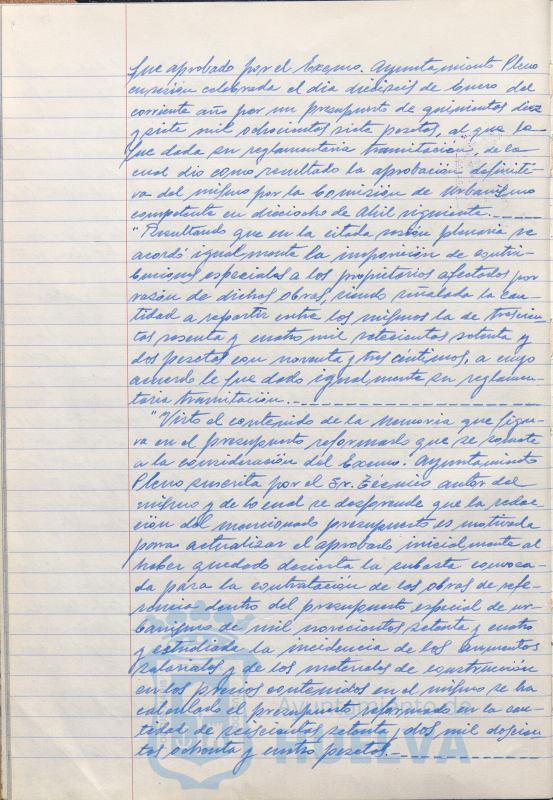 fue aprobado por el Excmo. Ayuntamiento Pleno
en sesión celebrada el dia dieciseis de Enero del
corriente año por un presupuesto de quinientos diez
y siete mil ochocientas siete pesetas, al que le
fue dada su reglamentaria tramitación, de la
cual dio como resultado la aprobación definiti-
va del mismo por la Comisión de Urbanismo
competente en dieciocho de Abril siguiente.
"Resultando que en la citada sesión plenaria se
acordó igualmente la imposición de contri-
buciones especiales a los propietarios afectados por
razón de dichas obras, siendo señalada la can-
tidad a repartir entre los mismos la de trescien-
tas sesenta y cuatro mil setecientas setenta y
dos pesetas con noventa y tres céntimos, a cuyo
acuerdo le fue dado igualmente su reglamen-
taria tramitación.
"Visto el contenido de la Memoria que figu-
ra en el presupuesto reformado que se somete
a la consideración del Excmo. Ayuntamiento
Pleno suscrita por el Sr. Técnico autor del
mismo y de lo cual se desprende que la redac-
ción del mencionado presupuesto es motivada
para actualizar el aprobado inicialmente al
haber quedado desierta la subasta convoca-
da para la contratación de las obras de refe-
rencia dentro del presupuesto especial de ur-
banismo de mil novecientos setenta y cuatro
y estudiada la incidencia de los aumentos
salariales y de los materiales de construcción
en los precios contenidos en el mismo se ha
calculado el presupuesto reformado en la can-
tidad de seiscientas setenta y dos mil doscien-
tas ochenta y cuatro pesetas.
Ayuntamiento de
HUELVA